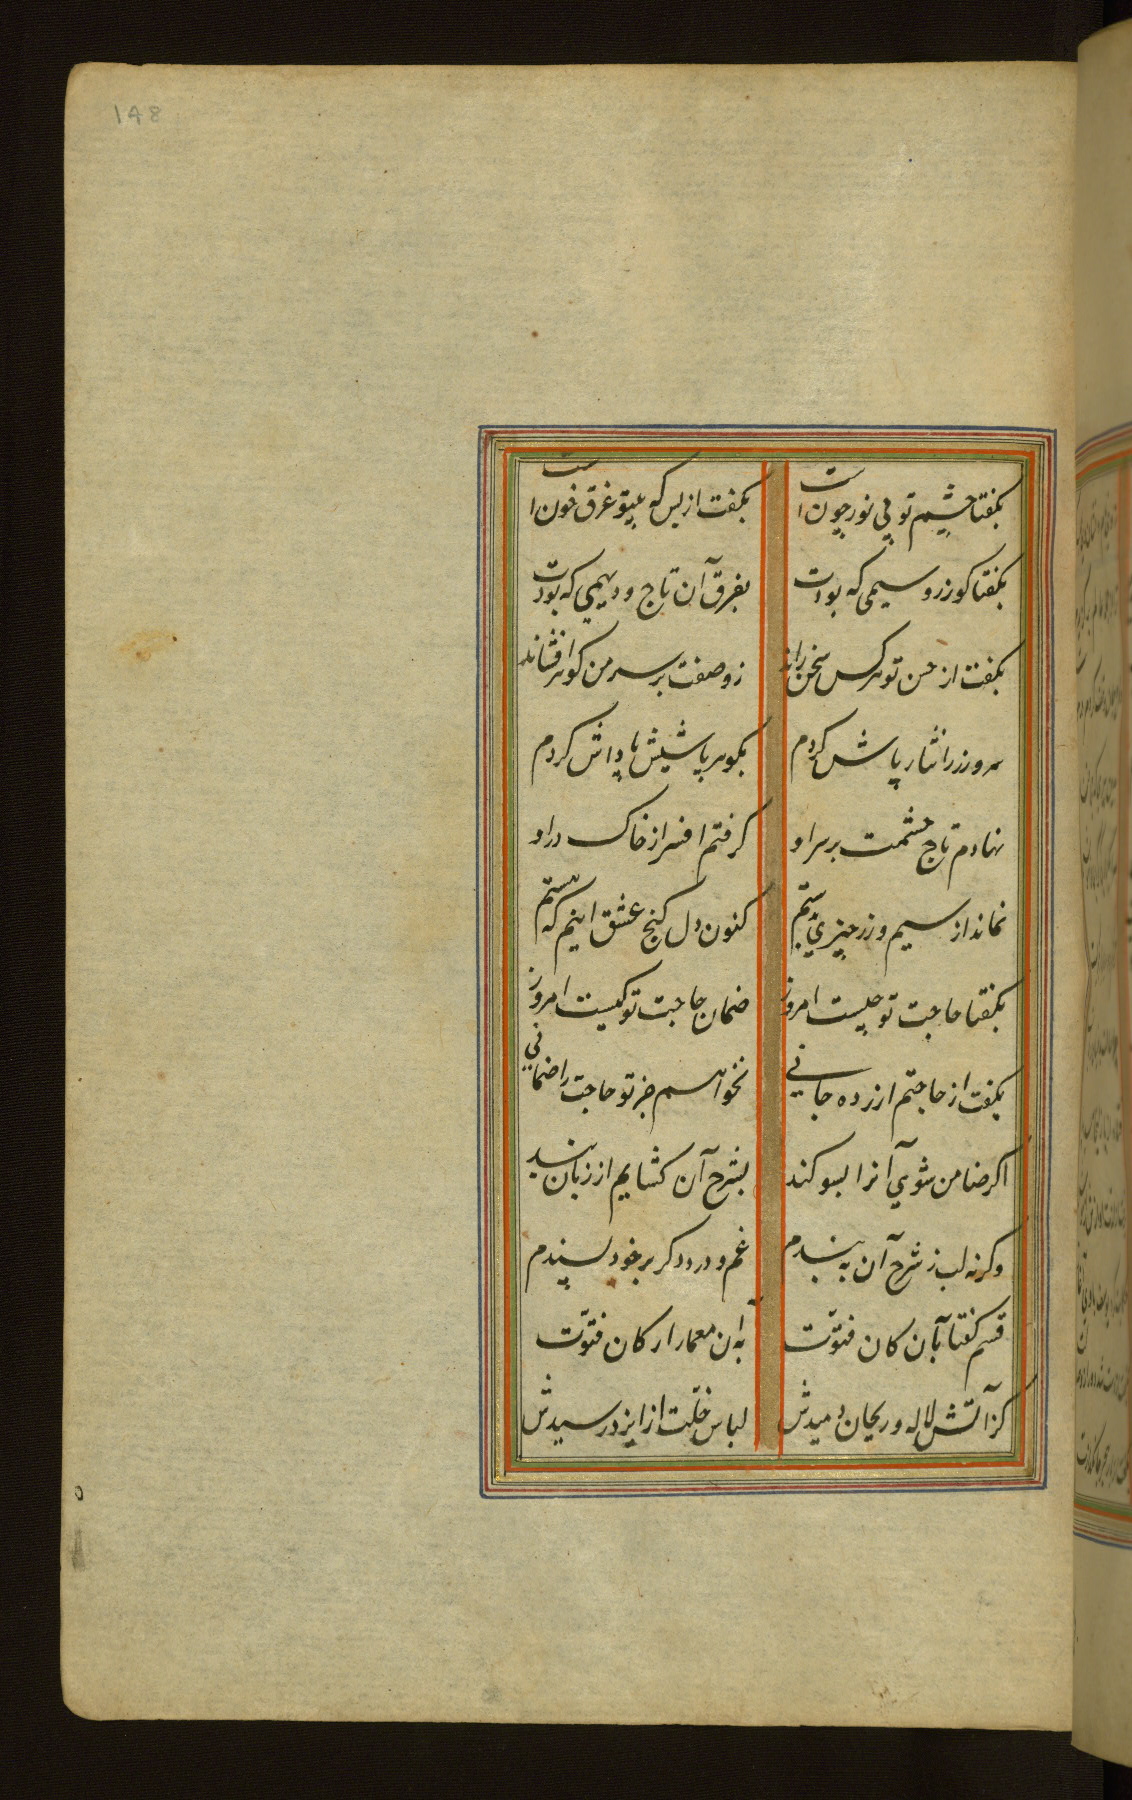 148
بکفتا چشم تو بی نور چونست بکفت از بس که بیتو غرق خونست
بکفتا کو زر و سیمی که بودت بفرق آن تاج و دیهیمی که بودت
بکفت از حسن تو هر کس سخن راند ز وصفت بر سر من کوهر افشاند
سر و زر را نثار پاش کردم بکوهر پاشیش پاداش کردم
نهادم تاج حشمت بر سر او کرفتم افسر از خاک در او
نماند از سیم و زر چیزی بدستم کنون دل کنج عشق اینم که هستم
بکفتا حاجت تو چیست امروز ضمان حاجت تو کیست امروز
بکفت از حاجتم ازرده جانی نخواهم جز تو حاجت را ضمانی
اکر ضامن شوی آنرا بسوکند بشرح آن کشایم از زبان بند
وکرنه لب ز شرح آن به بندم غم و درد دکر بر خود پسندم
قسم کفتا بآن کان فتوّت به آن معمار ارکان فتوّت
کز آتش لاله و ریحان دمیدش لباس خلّت از ایزد رسیدش